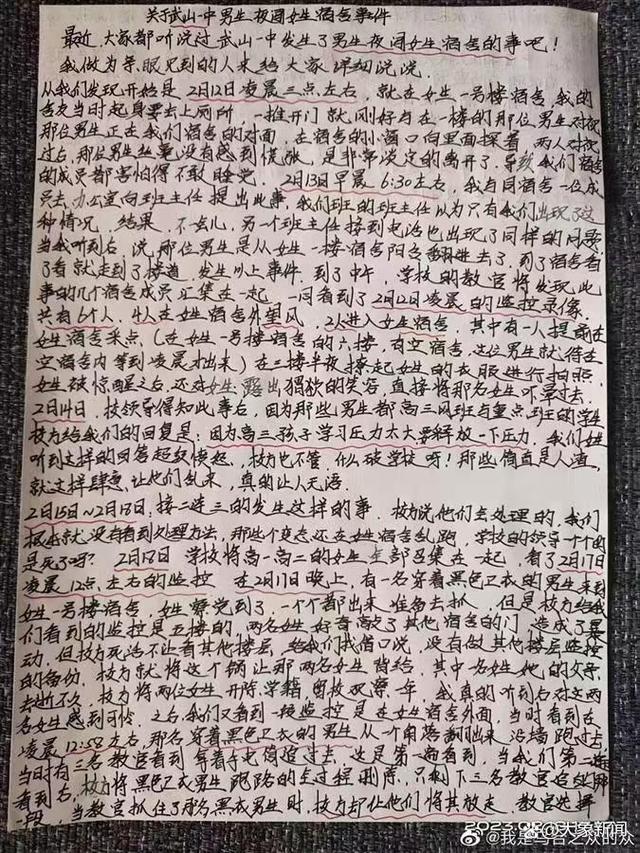 关于武山一中男生夜闯女生宿舍事件
最近,大家都听说过武山一中发生了男生夜闯女生宿舍的事吧!
我做为亲眼见到的人来给大家详细说说,
从我们发现开始是2月12日凌晨三点左右,就在女生一号楼宿舍,我的
舍友当时起身要去上厕所,一推开门就刚好与在一楼的那位男生对视
那位男生正在我们宿舍的对面,在宿舍的小窗口向里面探着,两人对视
过后,那位男生丝毫没有感到慌张,是非常淡定的离开了,导致我们宿舍
的成员都害怕得不敢睡觉。2月13日早晨6:30左右,我与同宿舍一位成
员去办公室向班主任提出此事,我们班的班主任以为只有我们出现了这
种情况,结果,不一会儿,另一个班主任接到电话也出现了同样的问题,
当我听到后,说那位男生是从女生一楼宿舍阳台翻进去了,到了宿舍看
了看就走到了楼道,发生以上事件,到了中午,学校的教官将发现此
事的几个宿舍成员汇集在一起,一同看到了2月12日凌晨的监控录像,
共有6个人,4人在女生宿舍外望风,2人进入女生宿舍,其中有一人提前在
女生宿舍采点(在女生一号楼宿舍的六楼,有空宿舍,这位男生就待在
空宿舍内等到凌晨才出来)在三楼半夜撩起女生的衣服进行拍照,
女生被惊醒之后,还对女生露出猥亵的笑容,直接将那名女生吓晕过去。
2月14日,校领导得知此事后,因为那些男生都高三风班与重点班的学生
校方给我们的回复是:因为高三孩子学习压力太大,要释放一下压力,我们
听到这样的回答超级愤怒,校方也不管,什么破学校呀!那些简直是人渣,
就这样肆意让他们乱来,真的让人无语。
2月15日~2月17日,接二连三的发生这样的事,校方说他们去处理的,我们
根本就没有看到处理方法,那些变态还在女生宿舍乱跑,学校的领导一个个的
是死了吗? 2月18日 学校将高一高二的女生全部召集在一起,看了2月17日
凌晨12点左右的监控 在2月17日晚上,有一名穿着黑色卫衣的男生来到
女生一号楼宿舍,女生察觉到了,一个个都出来准备去抓,但是校方给我
们看到的监控是五楼的,两名女生好奇敲了其他宿舍的门,造成了暴
动,但校方死活不让看其他楼层,给我们找借口说,没有做其他楼层监控
的备份,校方就将这个锅让那两名女生背锅,其中一名女生她的父亲
去逝不久,校方将两位女生开除学籍,留校观察一年,我真的听到后对这两
名女生感到可惜,之后我们又看到一楼监控是在女生宿舍外面,当时看到在
凌晨12:58左右,那名穿着黑色卫衣的男生从一个角落翻出来,沿墙跑过去,
当时有三名教官看到,拿着手电筒追过去,这是第一遍看到,当我们第二遍
看到后,校方将黑色卫衣男生跑路的全过程删除,只剩下三名教官追的那
一段,当教官抓住了那名黑衣男生时,校方却让他们将其放走,教官选择
2023.02 @大象新闻
@我是乌合之众的众